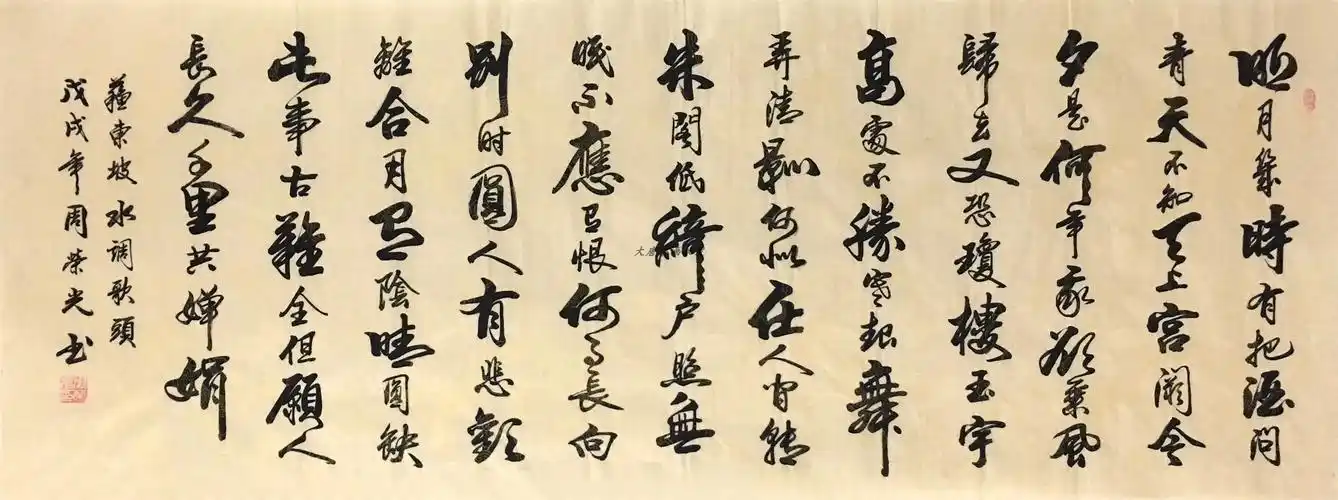 明月幾時有把酒問
青天不知天上宮闕今
夕是何年我欲乘風
歸去又恐瓊樓玉宇
高處不勝寒起舞
弄清影何似在人间轉
朱閣低綺户照無
眠不應有恨何事長向
别时圓人有悲歡
離合月有陰晴圓缺
此事古難全但願人
長久千里共嬋娟
蘇東坡水調歌頭
戊戌年周榮光书